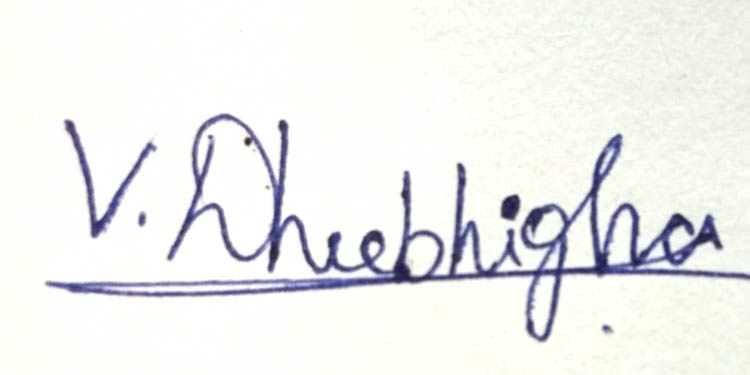 V. Dheebhigha